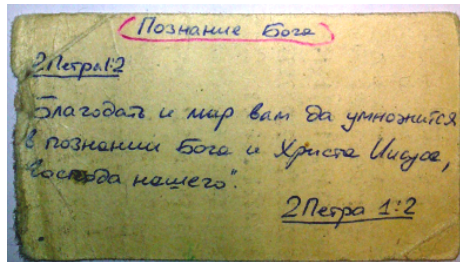 Познание Бога
2Петра1:2
Благодать и мир вам да умножится
в познании Бога и Христа Иисуса,
Господа нашего".
2Петра 1:2